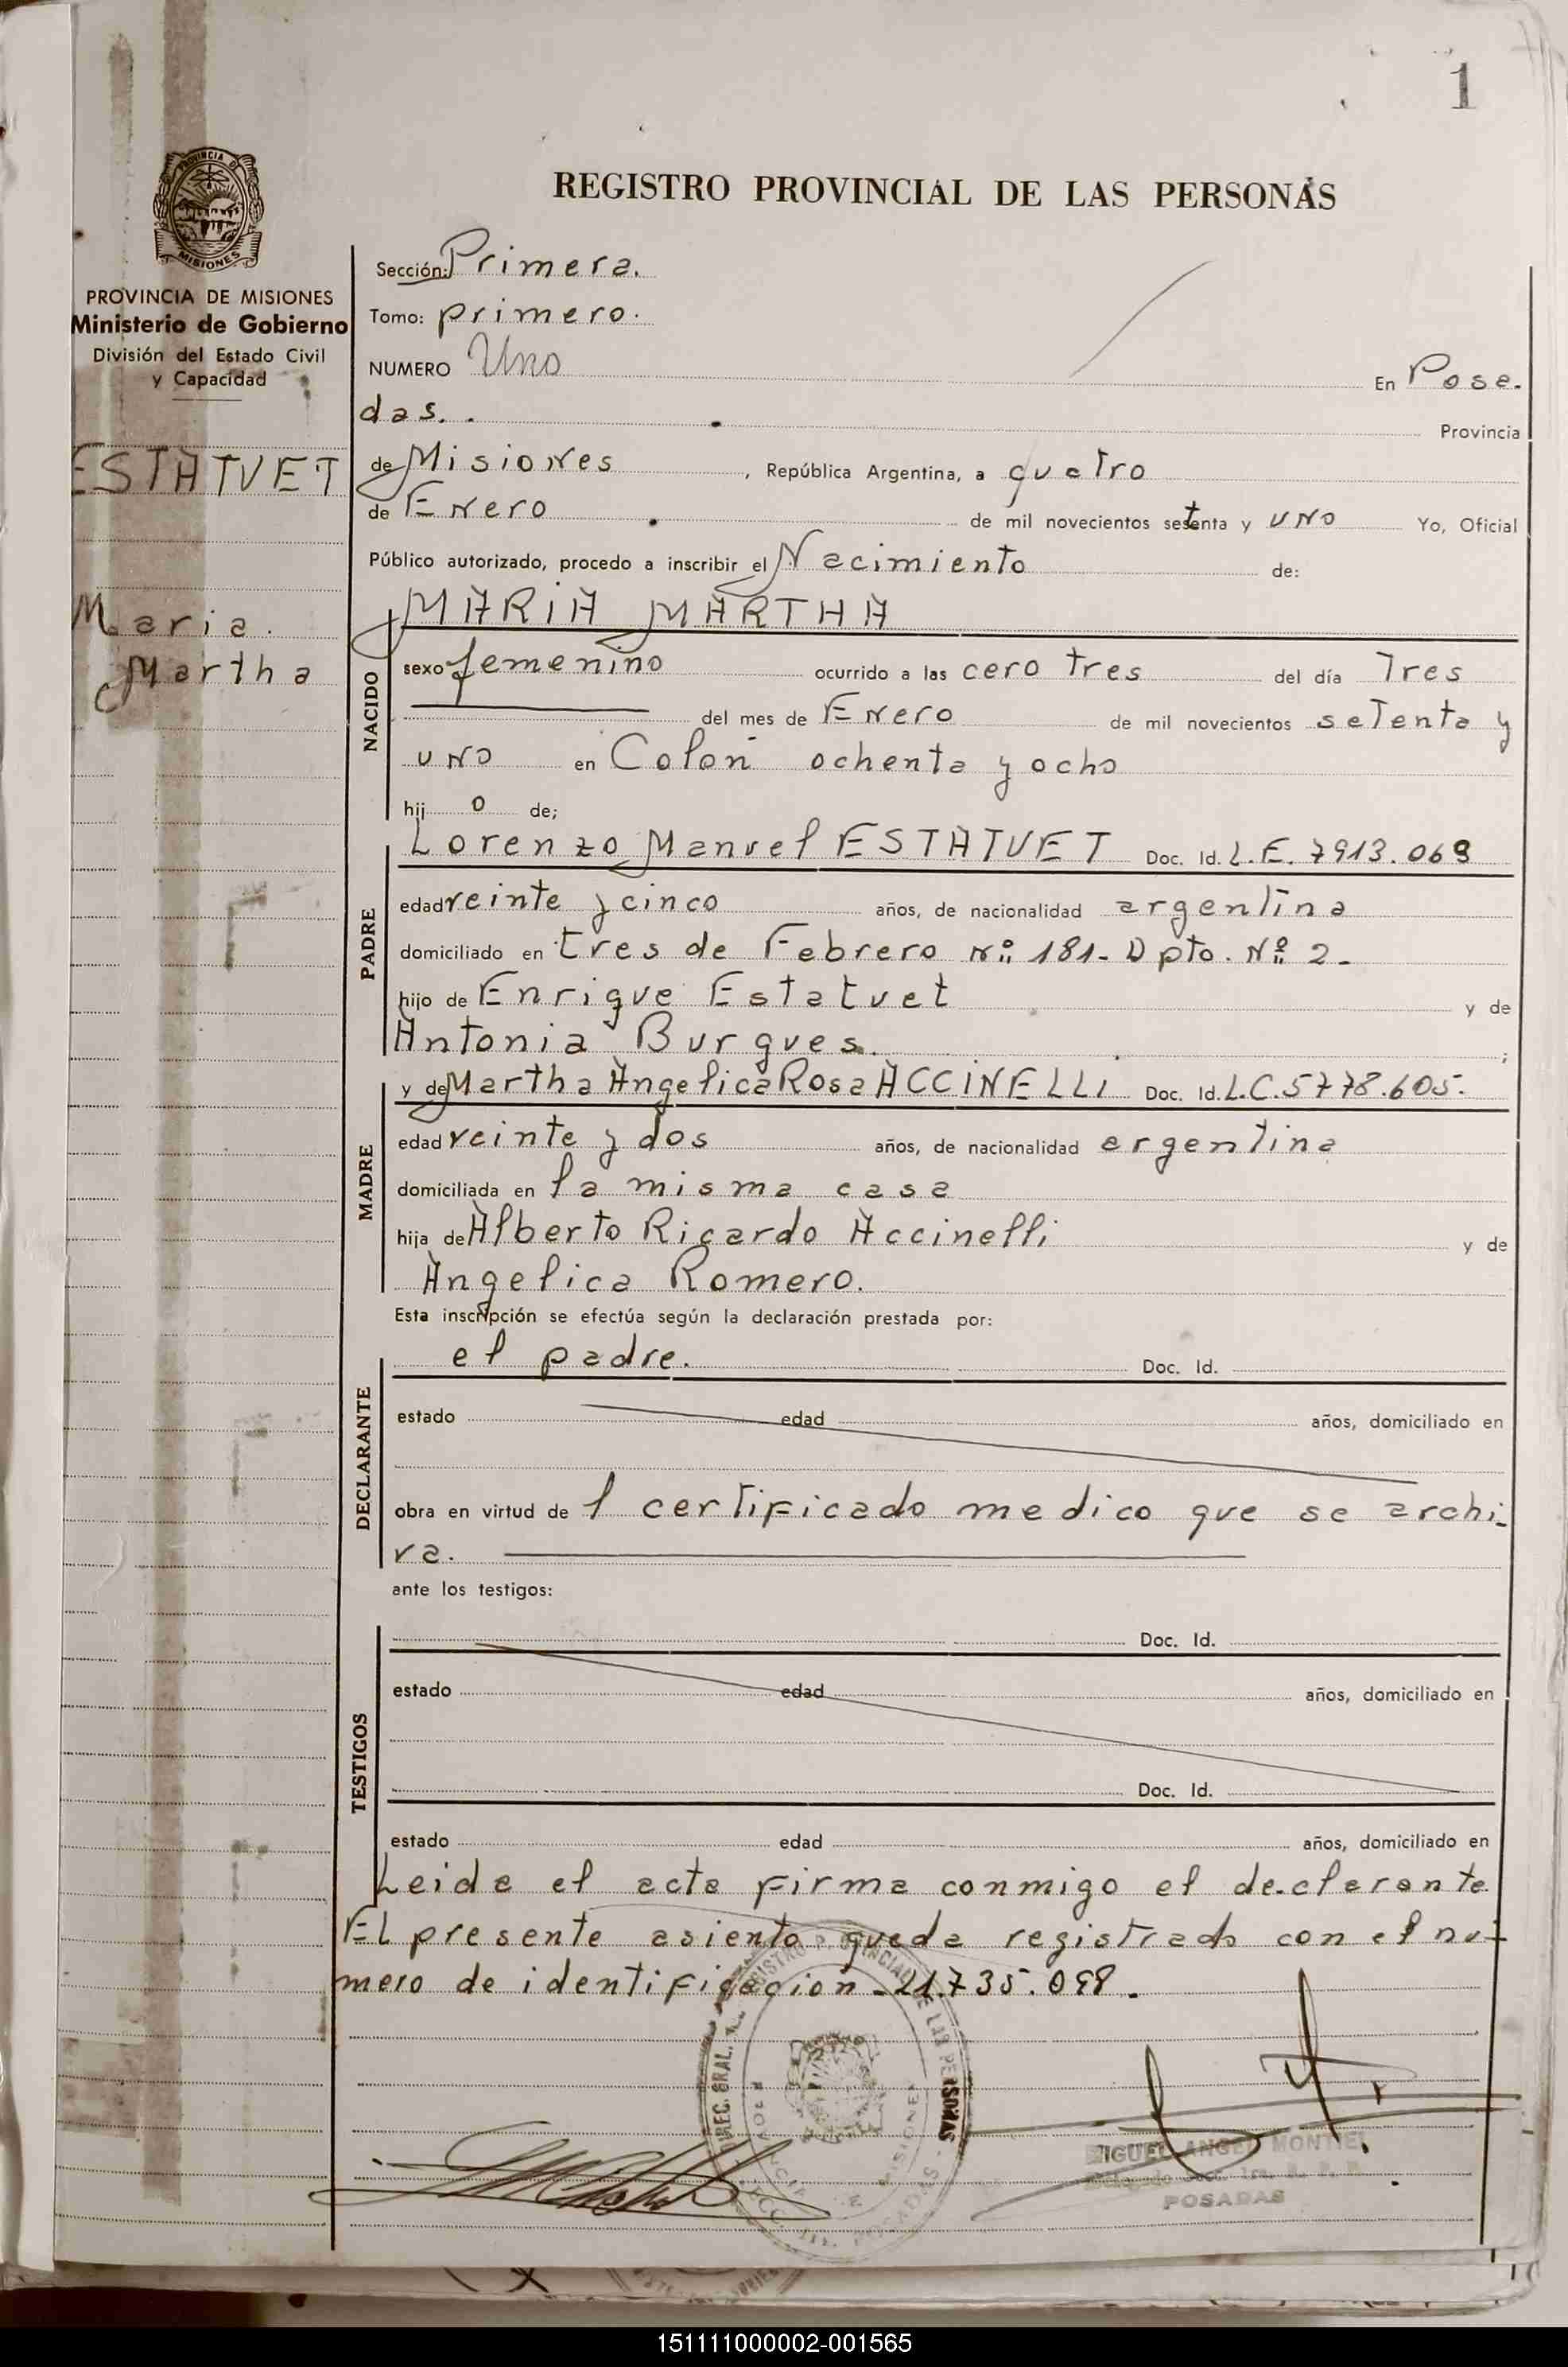 1
PROVINCIA DE
MISIONES
REGISTRO PROVINCIAL DE LAS PERSONAS
PROVINCIA DE MISIONES
Ministerio de Gobierno
División del Estado Civil
y Capacidad
ESTATUET
Maria.
Martha
Sección: Primera.
Tomo: primero.
NUMERO Uno En Posa-
das. Provincia
de Misiones, República Argentina, a quatro
de Enero de mil novecientos setenta y uno Yo, Oficial
Público autorizado, procedo a inscribir el Nacimiento de:
MARIA MARTHA
NACIDO
sexo femenino ocurrido a las cero tres del día Tres
del mes de Enero de mil novecientos setenta y
uno en Colon ochenta y ocho
hij o de;
PADRE
Lorenzo Manuel ESTATUET Doc. Id. L.E. 7913.069
edad veinte y cinco años, de nacionalidad argentina
domiciliado en tres de Febrero Nº 181- Dpto. Nº 2-
hijo de Enrique Estatuet y de
Antonia Burgues. ;
MADRE
y de Martha Angelica Rosa ACCINELLI Doc. Id. L.C. 5778.605.
edad veinte y dos años, de nacionalidad argentina
domiciliada en la misma casa
hija de Alberto Ricardo Accinelli y de
Angelica Romero.
Esta inscripción se efectúa según la declaración prestada por:
DECLARANTE
el padre. Doc. Id.
estado edad años, domiciliado en
obra en virtud de l certificado medico que se archi-
va.
ante los testigos:
TESTIGOS
Doc. Id.
estado edad años, domiciliado en
Doc. Id.
estado edad años, domiciliado en
Leida el acta firma conmigo el declarante
El presente asiento queda registrado con el nu-
mero de identificacion - 21.735.098.
DIREC. GRAL. REGISTRO PROVINCIAL DE LAS PERSONAS
POSADAS
MISIONES
MIGUEL ANGEL MONTIEL
POSADAS
151111000002-001565